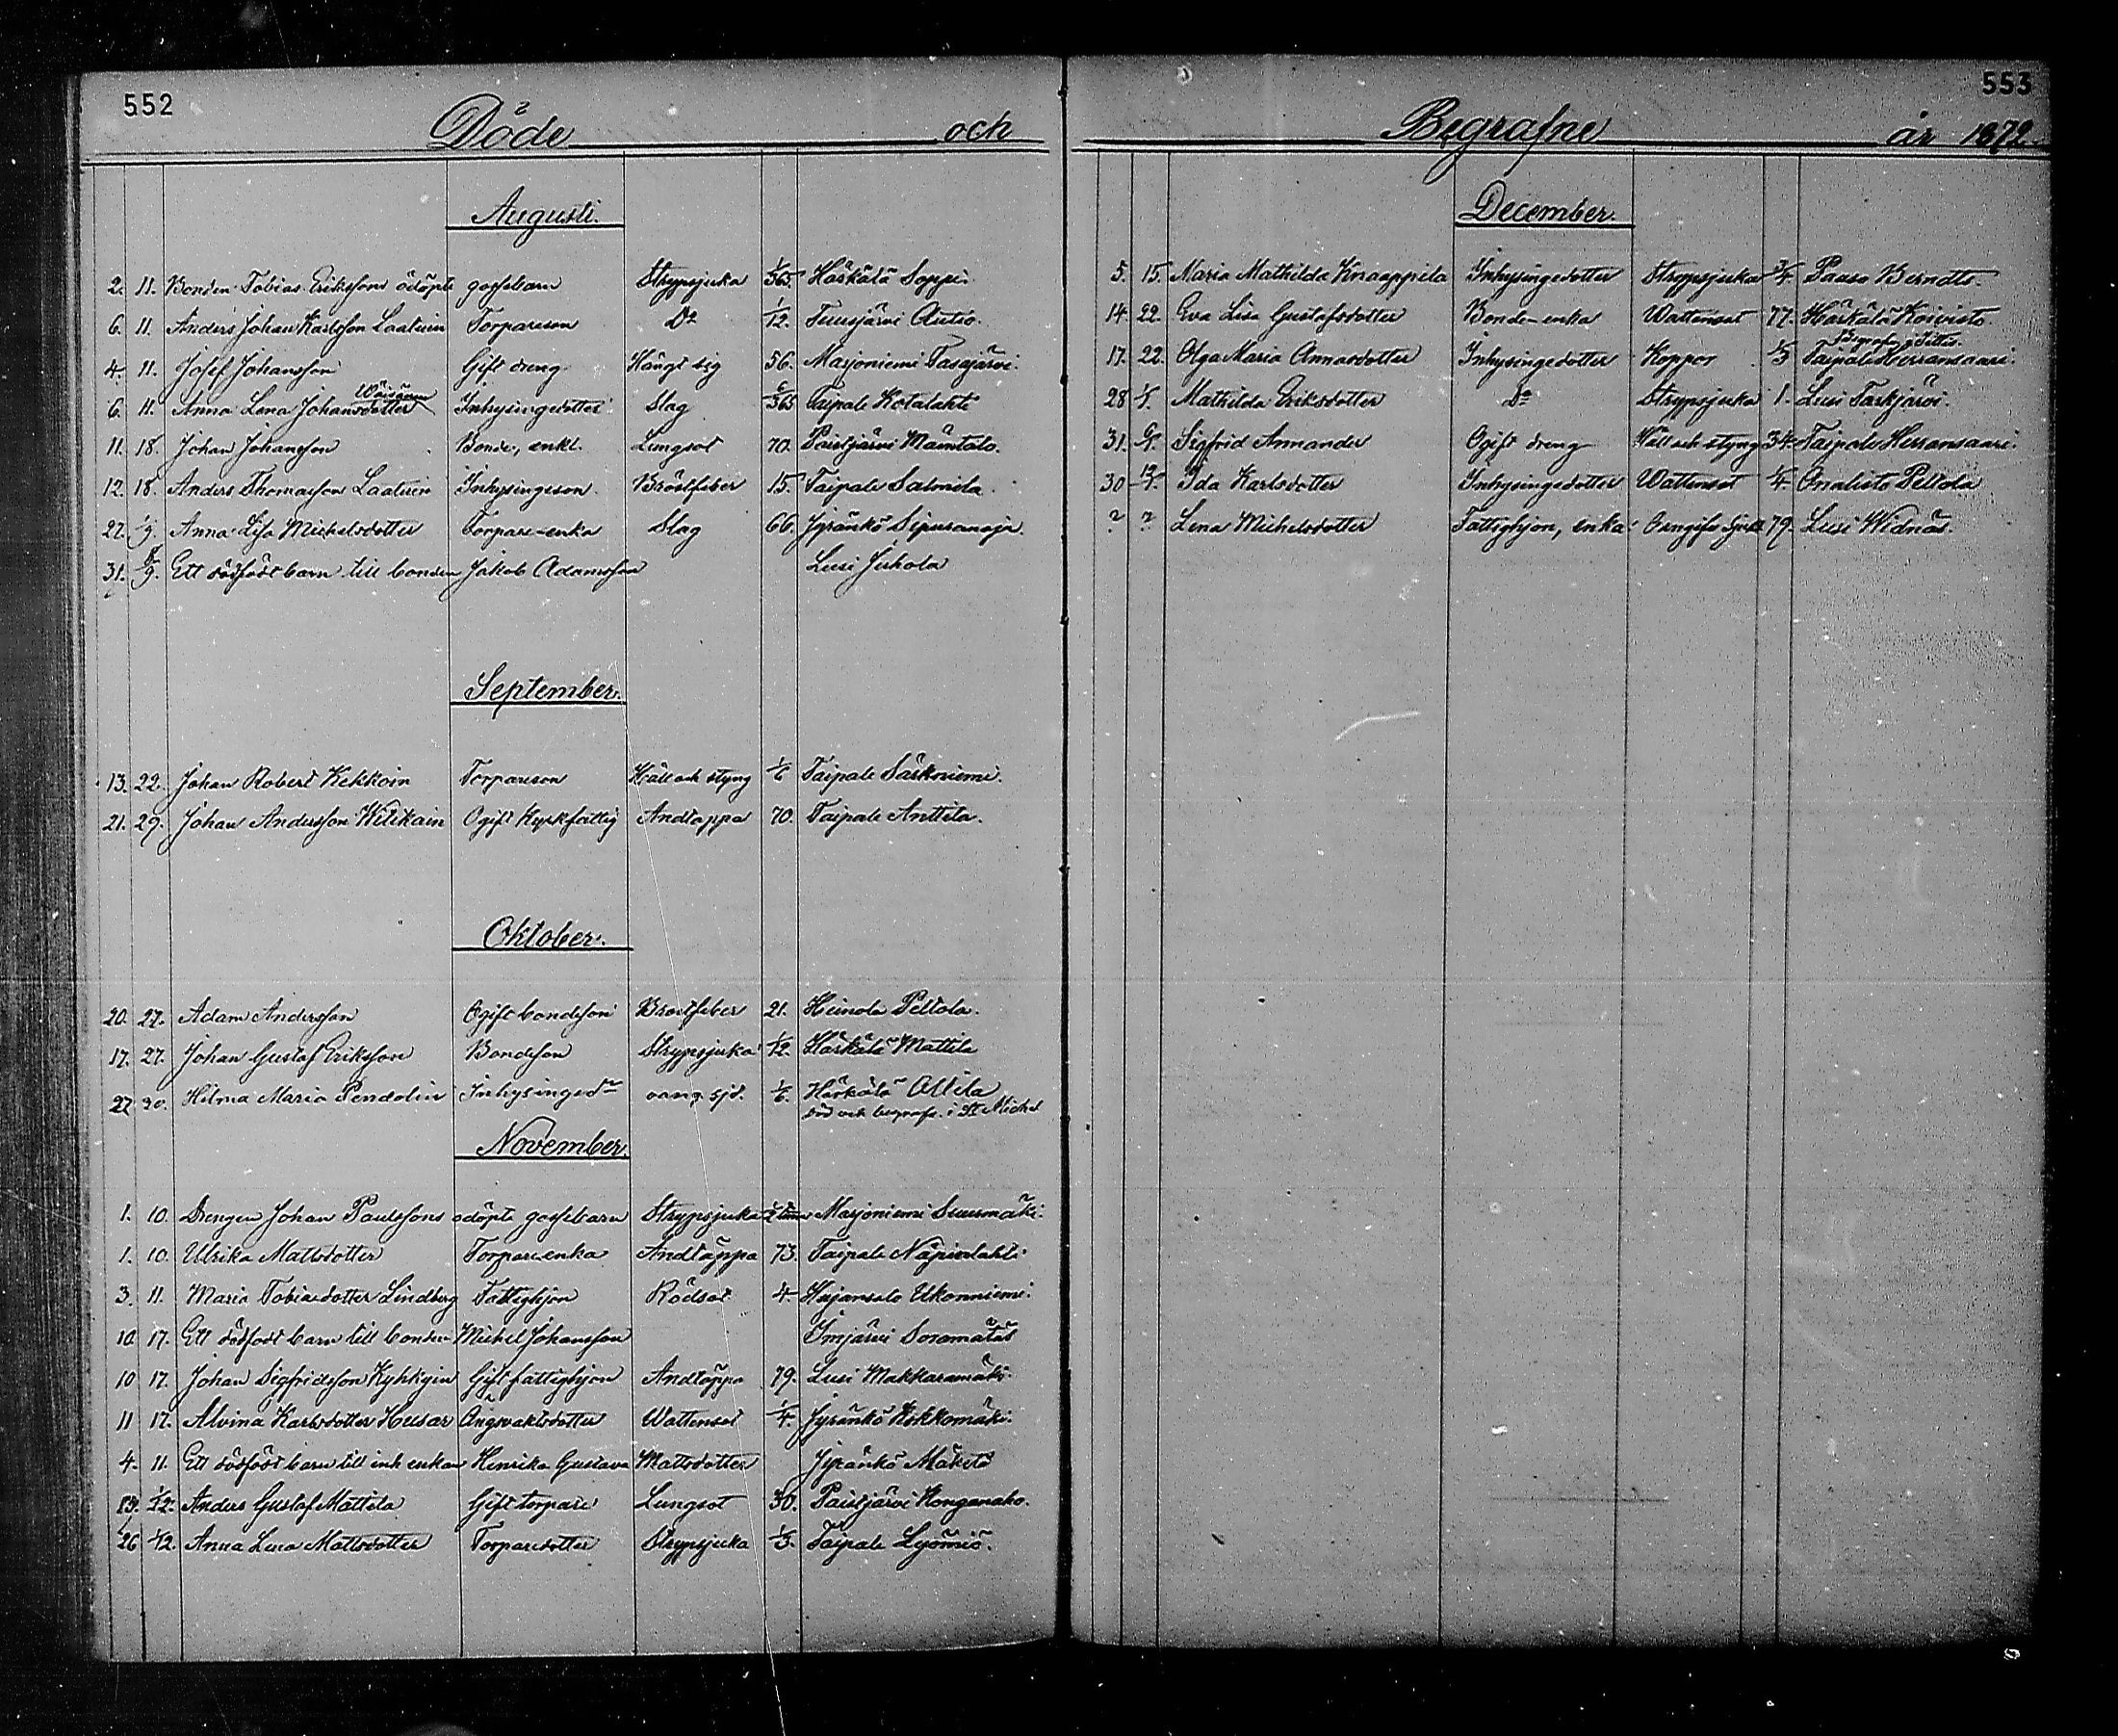 552
Döde och
Augusti.
2. 11. Bonden Tobias Erikssons odöpte gossebarn Strypsjuka 1/365. Häskälä Soppi.
6. 11. Anders Johan Karlsson Laatuin Torpareson D:o 1/12. Tuusjärvi Autio.
4. 11. Josef Johansson Gift dreng Hängt sig 56. Marjoniemi Tasajärvi.
Wäisänen
6. 11. Anna Lena Johansdotter Inhysingedotter Slag 6/365 Taipale Kotalahti
11. 18. Johan Johansson Bonde, enkl. Lungsot 70. Paistjärvi Mäntälä.
12. 18. Anders Thomasson Laatuin Inhysingeson Bröstfeber 15. Taipale Salmela.
27. 1/9. Anna Lisa Michelsdotter Torpare-enka Slag 66. Jyränkö Sipuranoja.
31. 8/9. Ett dödfödt barn till bonden Jakob Adamsson Lusi Juhola
September.
13. 22. Johan Robert Kekkoin Torpareson Håll och styng 1/6 Taipale Särkniemi.
21. 29. Johan Andersson Witikain Ogift Kyrkfattig Andtäppa 70. Taipale Anttila.
Oktober.
20. 27. Adam Andersson Ogift bondeson Bröstfeber 21. Heinola Peltola.
17. 27. Johan Gustaf Eriksson Bondeson Strypsjuka 1/12. Härkälä Mattila
27 30. Hilma Maria Pendolin Inhysinged:r oang. sjd. 1/6. Härkälä Ollila
död och begrafn. i S:t Michel
November.
1. 10. Drengen Johan Paulssons odöpte gossebarn Strypsjuka Marjoniemi Suurmäki.
1. 10. Ulrika Mattsdotter Torpareenka Andtäppa 73. Taipale Näpinlahti.
3. 11. Maria Tobiasdotter Lindberg Fattighjon Rödsot 4. Hujansalo Ukonniemi.
10. 17. Ett dödfödt barn till bonden Michel Johansson Imjärvi Soramäki
10 17. Johan Sigfridsson Kyhkyin Gift fattighjon Andtäppa 79. Lusi Makkaramäki.
11 17. Alvina Karlsdotter Husar Ångvaktsdotter Wattensot 1/4. Jyränkö Kokkomäki.
4. 11. Ett dödfödt barn till inh enkan Henrika Gustava Mattsdotter Jyränkö Mäkelä
19. 1/12. Anders Gustaf Mattila Gift torpare Lungsot 30. Paistjärvi Konganaho.
26 1/12. Anna Lena Mattsdotter Torparedotter Strypsjuka 1/3. Taipale Lyömiö.
553
Begrafne år 1872.
December.
5. 15. Maria Mathilda Knaappila Inhysingedotter Strypsjuka 3/4. Paaso Berndts.
14. 22. Eva Lisa Gustafsdotter Bonde-enka Wattensot 77. Härkälä Koivisto.
Begrafn. i Sittis.
17. 22. Olga Maria Annasdotter Inhysingedotter Koppor 1/3 Taipale Herransaari.
28 1/1. Mathilda Eriksdotter D:o Strypsjuka 1. Lusi Taskjärvi.
31. 6/1. Sigfrid Annander Ogift dreng Håll och styng 34. Taipale Herransaari.
30 12/1. Ida Karlsdotter Inhysingedotter Wattensot 1/4. Onalisto Peltola
? ? Lena Michelsdotter Fattighjon, enka Oangifn sjuk 79. Lusi Widnäs.